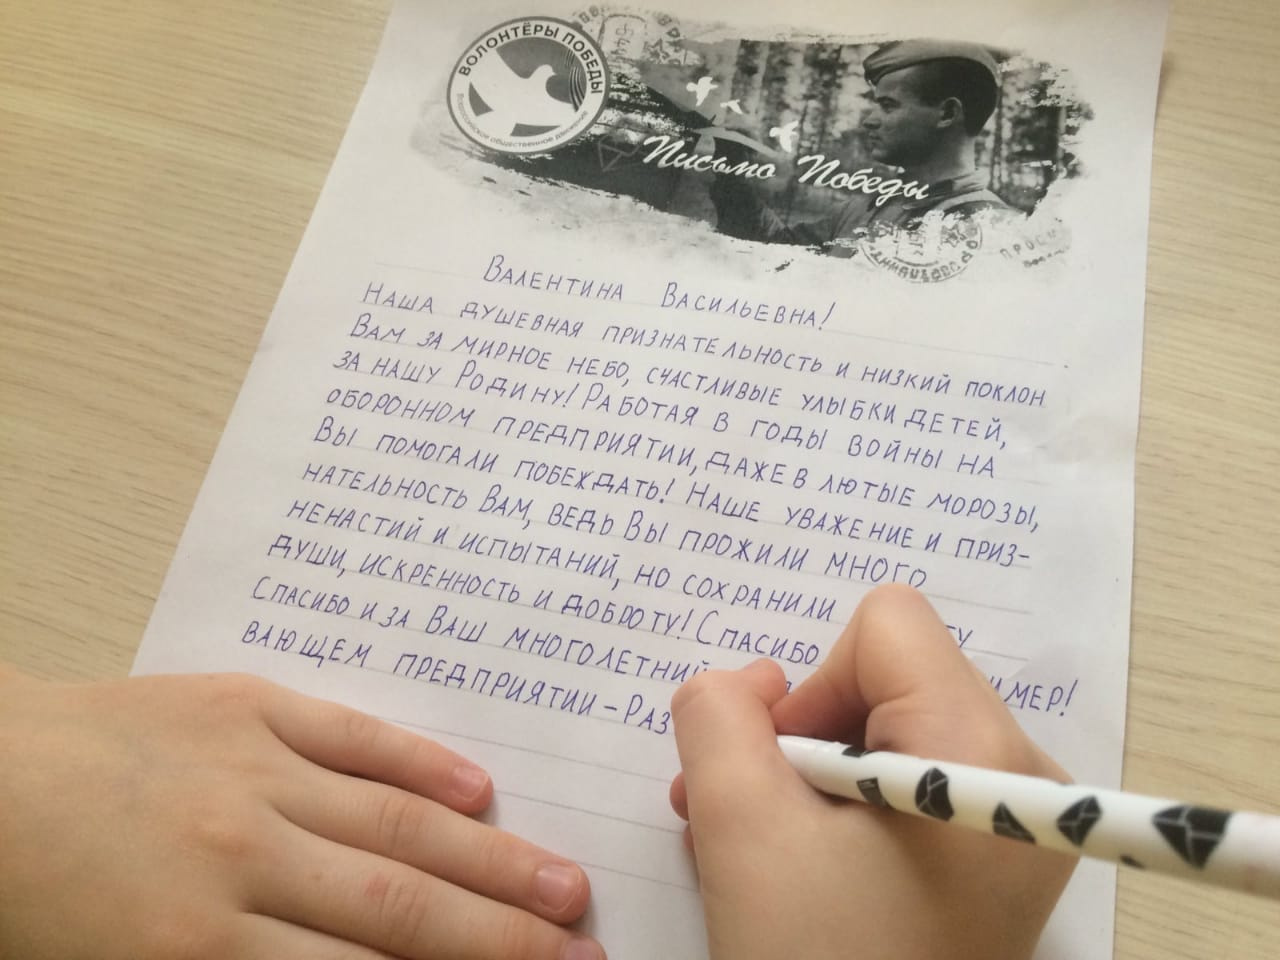 ВОЛОНТЁРЫ ПОБЕДЫ
ВСЕРОССИЙСКОЕ ОБЩЕСТВЕННОЕ ДВИЖЕНИЕ
Письмо Победы
ВАЛЕНТИНА ВАСИЛЬЕВНА!
НАША ДУШЕВНАЯ ПРИЗНАТЕЛЬНОСТЬ И НИЗКИЙ ПОКЛОН
ВАМ ЗА МИРНОЕ НЕБО, СЧАСТЛИВЫЕ УЛЫБКИ ДЕТЕЙ,
ЗА НАШУ РОДИНУ! РАБОТАЯ В ГОДЫ ВОЙНЫ НА
ОБОРОННОМ ПРЕДПРИЯТИИ, ДАЖЕ В ЛЮТЫЕ МОРОЗЫ,
ВЫ ПОМОГАЛИ ПОБЕЖДАТЬ! НАШЕ УВАЖЕНИЕ И ПРИЗ-
НАТЕЛЬНОСТЬ ВАМ, ВЕДЬ ВЫ ПРОЖИЛИ МНОГО
НЕНАСТИЙ И ИСПЫТАНИЙ, НО СОХРАНИЛИ
ДУШИ, ИСКРЕННОСТЬ И ДОБРОТУ! СПАСИБО
СПАСИБО И ЗА ВАШ МНОГОЛЕТНИЙ
ВАЮЩЕМ ПРЕДПРИЯТИИ – РАЗ